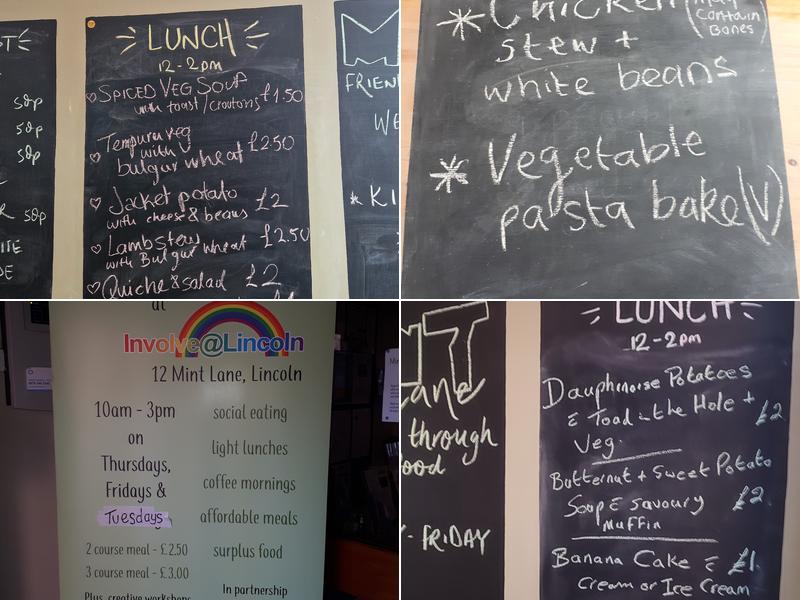 LUNCH
12-2pm
SPICED VEG SOUP
with toast/croutons £1.50
Tempura veg
with V £2.50
bulgur wheat
Jacket potato £2
with cheese & beans
Lamb stew £2.50
with Bulgur wheat
Quiche & salad £2
50p
50p
50p
50p
FRIEN
WE
KI
Chicken (may
contain
bones)
stew +
white beans
Vegetable
pasta bake (V)
at
Involve@Lincoln
12 Mint Lane, Lincoln
10am - 3pm
on
Thursdays,
Fridays &
Tuesdays
2 course meal - £2.50
3 course meal - £3.00
Plus, creative workshops
social eating
light lunches
coffee mornings
affordable meals
surplus food
In partnership
NT
ane
through
ood
- FRIDAY
LUNCH
12-2pm
Dauphinoise Potatoes
& Toad in the Hole + £2
Veg.
Butternut & Sweet Potato
Soup & savoury £2
Muffin
Banana Cake & £1.
Cream or Ice Cream